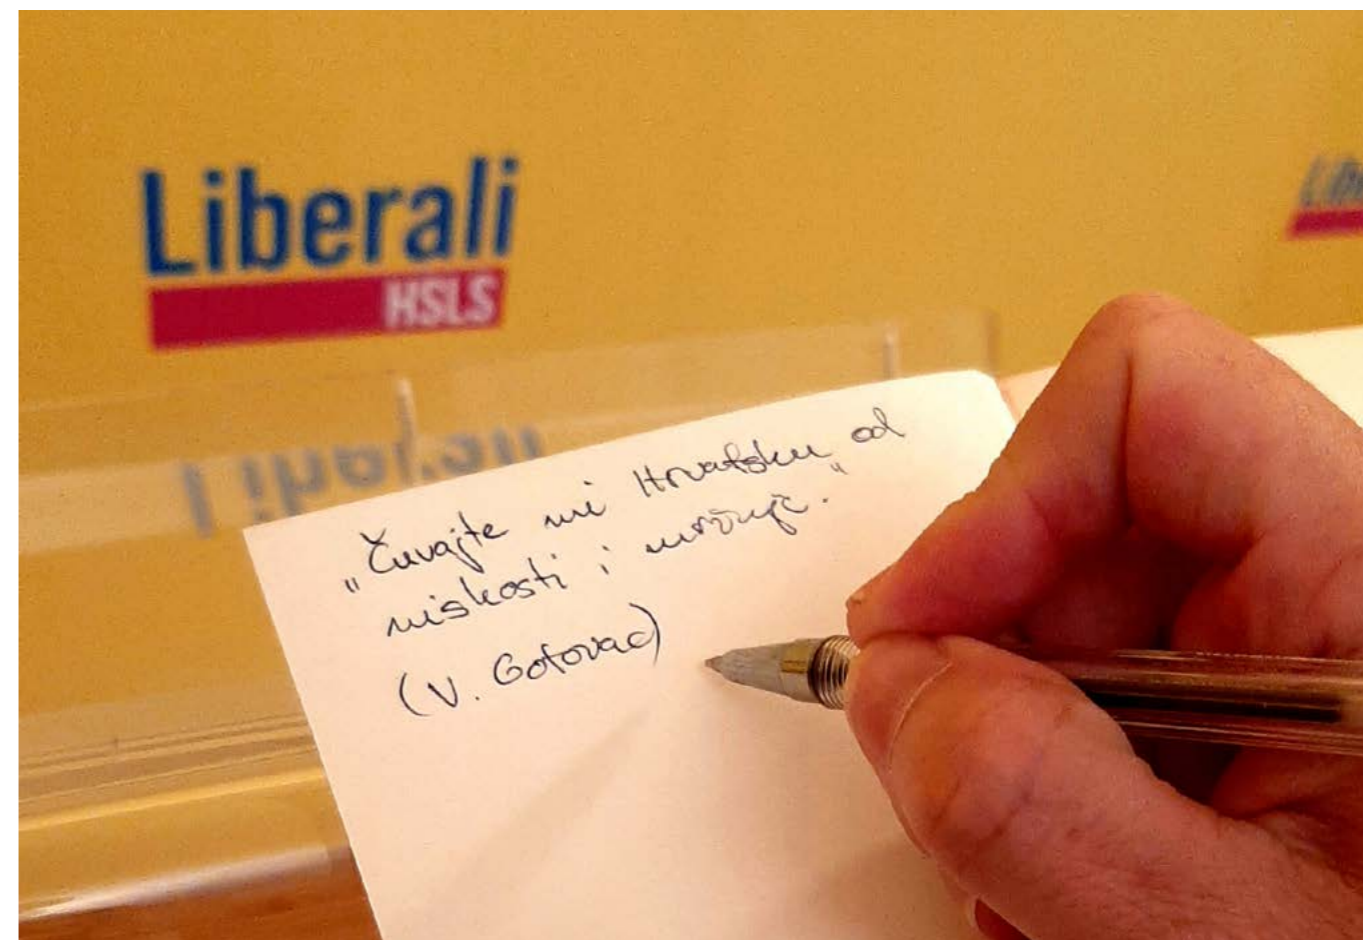 Liberali
HSLS
Libe
Liberali
„Čuvajte mi Hrvatsku od
niskosti i mržnje.“
(V. Gotovac)